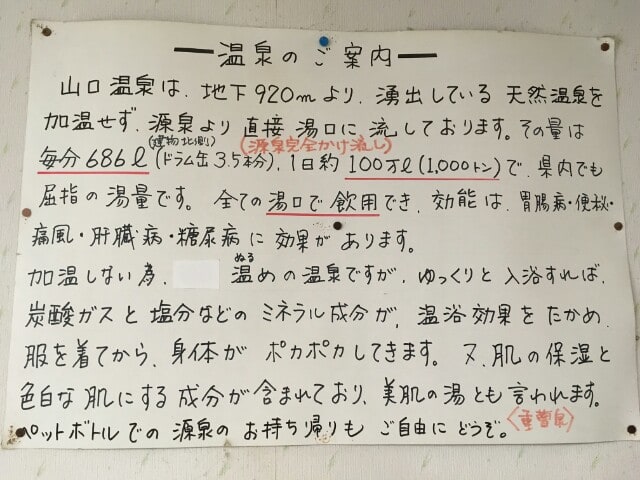 温泉のご案内
山口温泉は、地下920mより、湧出している天然温泉を
加温せず、源泉より直接湯口に流しております。その量は
(建物北側) (源泉完全かけ流し)
毎分686ℓ(ドラム缶3.5本分)、1日約100万ℓ(1,000トン)で、県内でも
屈指の湯量です。全ての湯口で飲用でき、効能は、胃腸病・便秘・
痛風・肝臓病・糖尿病に効果があります。
ぬる
加温しない為、温めの温泉ですが、ゆっくりと入浴すれば、
炭酸ガスと塩分などのミネラル成分が、温浴効果をたかめ、
服を着てから、身体がポカポカしてきます。又、肌の保湿と
色白な肌にする成分が含まれており、美肌の湯とも言われます。
ペットボトルでの源泉のお持ち帰りもご自由にどうぞ。〈重曹泉〉